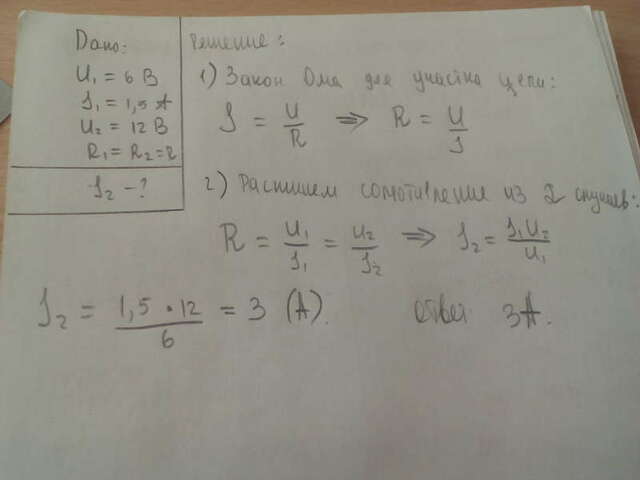 Дано:
U₁ = 6 В
I₁ = 1,5 А
U₂ = 12 В
R₁ = R₂ = R
I₂ - ?
Решение:
1) Закон Ома для участка цепи:
I = U/R ⇒ R = U/I
2) Распишем сопотивление из 2 случаев:
R = U₁/I₁ = U₂/I₂ ⇒ I₂ = I₁U₂/U₁
I₂ = 1,5 · 12/6 = 3 (А).
ответ 3А.